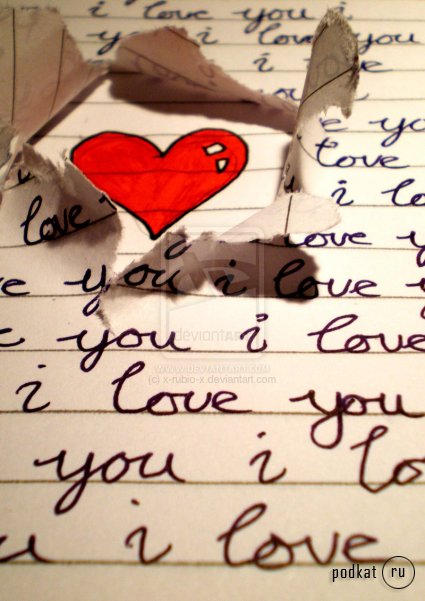 i love you i
you i love you
i love
e you
love
love i lo
love y
e you i love y
e you i love
deviantART
WWW.DEVIANTART.COM
(c) x-rubio-x.deviantart.com
i love you
you i lo
u i love
podkat ru